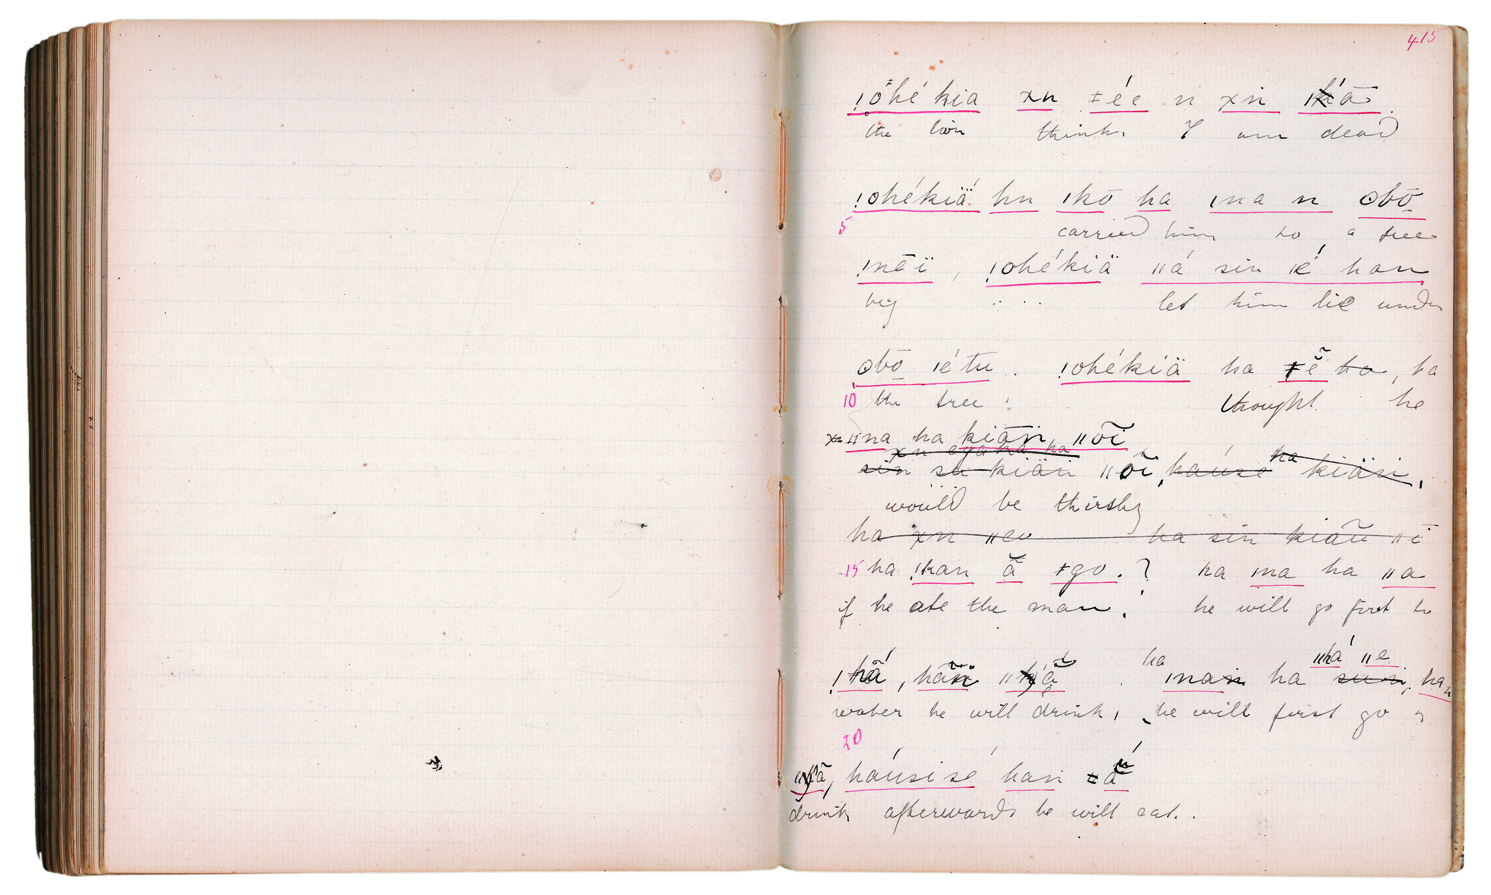 415
!ohékia xn ǂée n xn
the lion think. I am dead
!ohékiä hn ǀkō ha ǀna n ʘbō
5
carried him to a tree
!nēï, !ohékiä ǁá sin é han
big let him lie under
ʘbō ǀétu. !ohékiä ha ǂĕ̃ ha, ha
10 the tree. thought he
ǁna ha kiān, ǁõï
xn ha
sin sn kiän ǁõï, haúse ha kiän,
would be thirsty
ha xn ǁeo ha sin kiãũ ǁī
15 ha !kan ā̆ ǂgo.? ha ǀna ha ǁa
if he ate the man. he will go first to
ha ǁká ǁe
!kãá, hāñ ǁkã ǀnan ha, han
water he will drink, he will first go
20
ǁkã, haúsisé han ǂã́
drink afterwards he will eat.